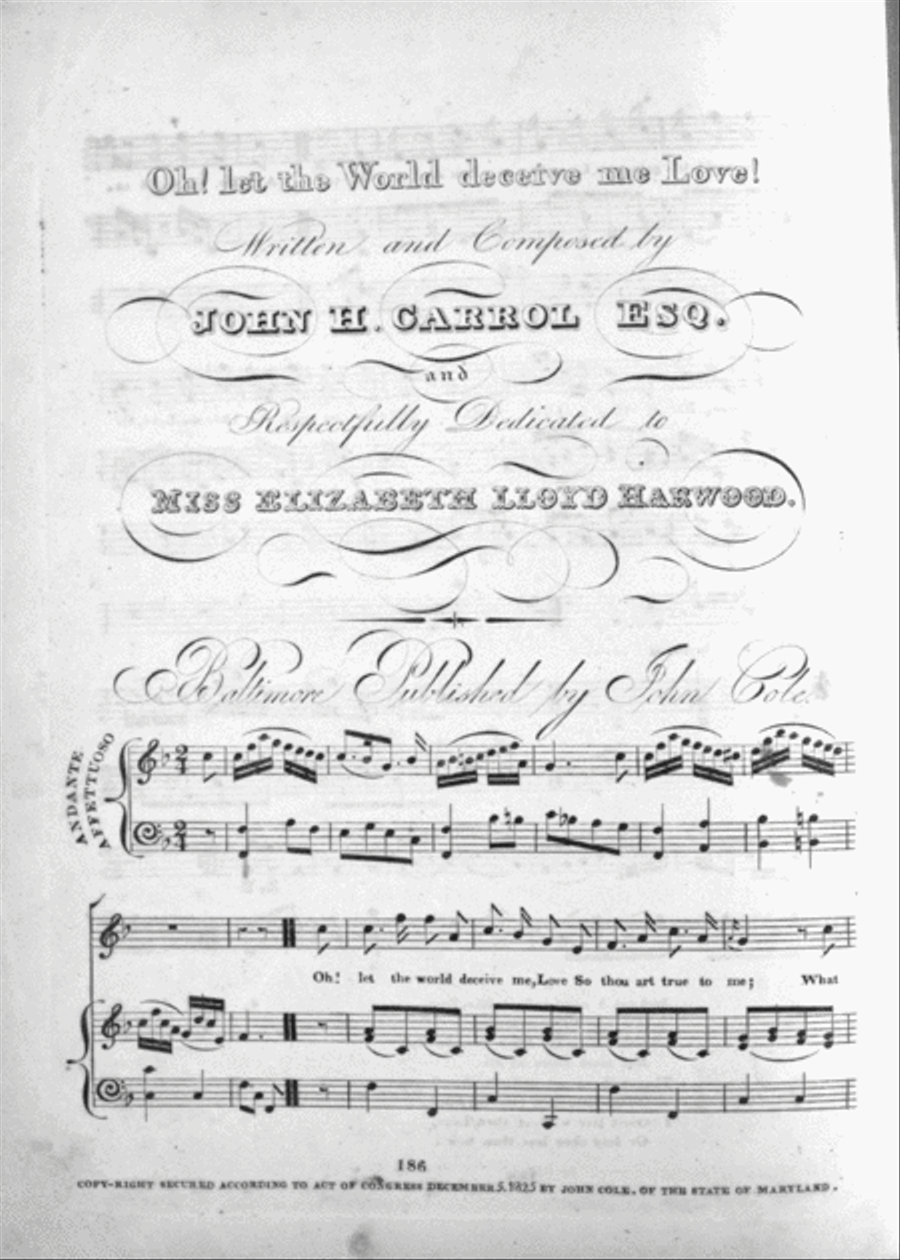 Oh! let the World deceive me Love!
Written and Composed by
JOHN H. CARROL ESQ.
and
Respectfully Dedicated to
MISS ELIZABETH LLOYD HARWOOD.
Baltimore Published by John Cole.
ANDANTE
AFFETTUOSO
2 4
2 4
Oh! let the world deceive me, Love So thou art true to me; What
186
COPY-RIGHT SECURED ACCORDING TO ACT OF CONGRESS DECEMBER 5. 1825 BY JOHN COLE, OF THE STATE OF MARYLAND.